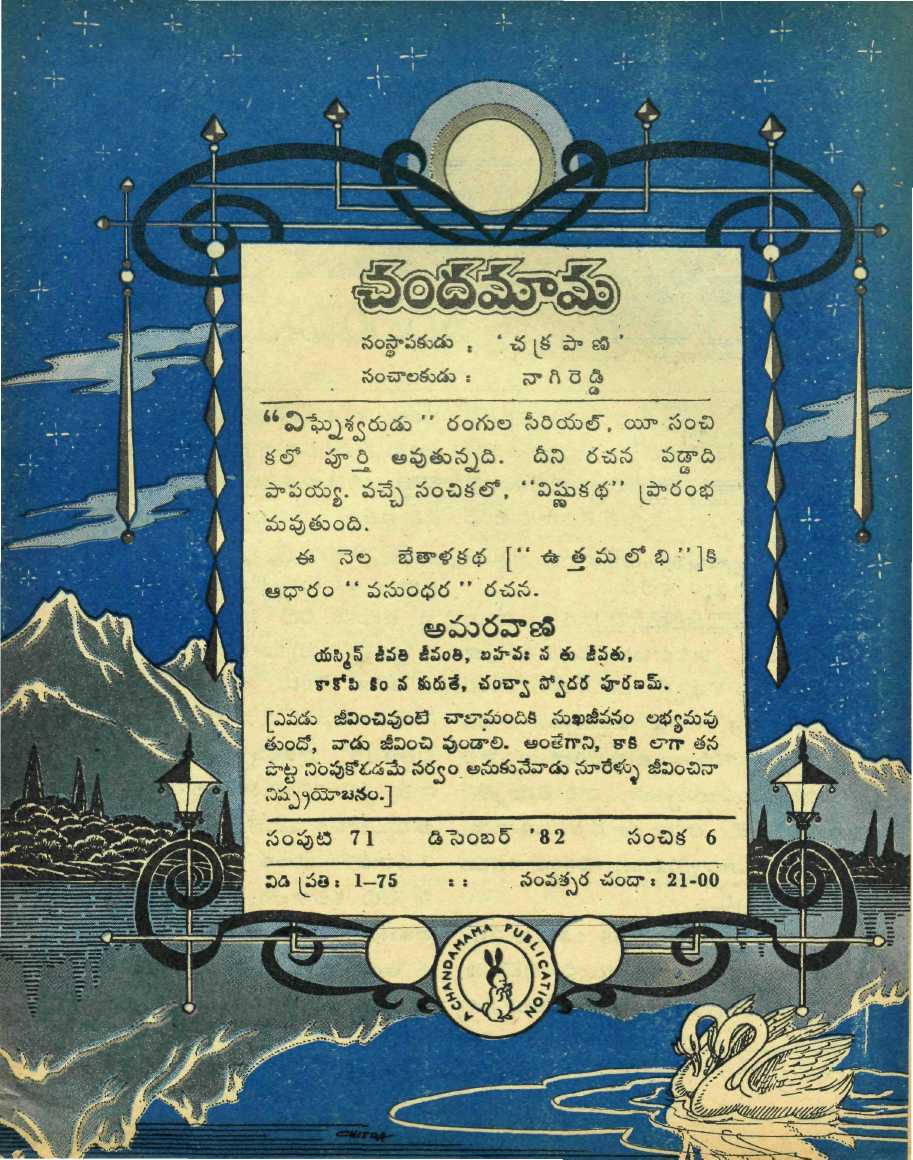 చందమామ
సంస్థాపకుడు : ‘చక్రపాణి’
సంచాలకుడు : నాగిరెడ్డి
“విఘ్నేశ్వరుడు’’ రంగుల సీరియల్, యీ సంచి
కలో పూర్తి అవుతున్నది. దీని రచన వడ్డాది
పాపయ్య. వచ్చే సంచికలో, ‘‘విష్ణుకథ’’ ప్రారంభ
మవుతుంది.
ఈ నెల బేతాళకథ [‘‘ఉత్తమలోభి’’]కి
ఆధారం ‘‘వసుంధర’’ రచన.
అమరవాణి
యస్మిన్ జీవతి జీవంతి, బహవః న తు జీవతు,
కాకోపి కిం న కురుతే, చంచ్వా స్వోదర పూరణమ్.
[ఎవడు జీవించివుంటే చాలామందికి సుఖజీవనం లభ్యమవు
తుందో, వాడు జీవించి వుండాలి. అంతేగాని, కాకి లాగా తన
పొట్ట నింపుకోడడమే సర్వం అనుకునేవాడు నూరేళ్ళు జీవించినా
నిష్ప్రయోజనం.]
సంపుటి 71 డిసెంబర్ '82 సంచిక 6
విడి ప్రతి : 1–75 : : సంవత్సర చందా : 21-00
A CHANDAMAMA PUBLICATION
CHITRA